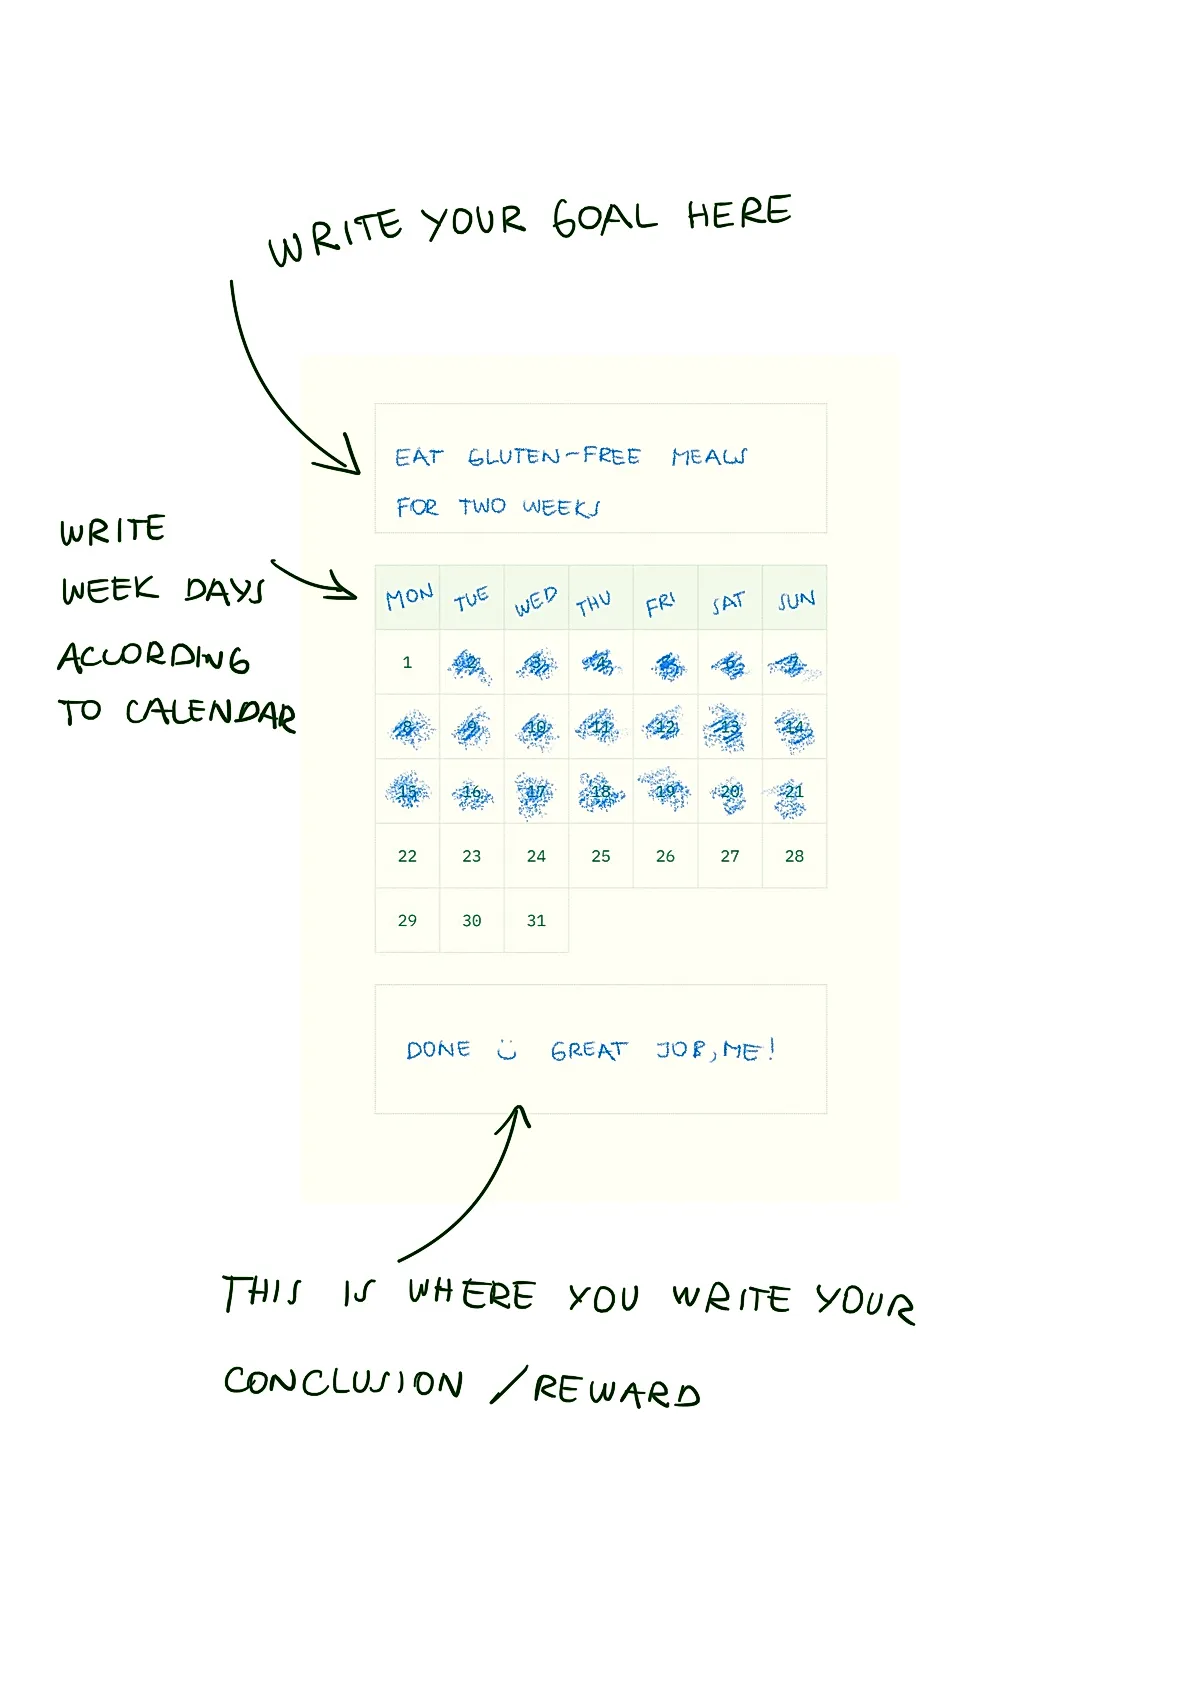 WRITE YOUR GOAL HERE
EAT GLUTEN-FREE MEALS
FOR TWO WEEKS
WRITE
WEEK DAYS
ACCORDING
TO CALENDAR
MON TUE WED THU FRI SAT SUN
1 2 3 4 5 6 7
8 9 10 11 12 13 14
15 16 17 18 19 20 21
22 23 24 25 26 27 28
29 30 31
DONE GREAT JOB, ME!
THIS IS WHERE YOU WRITE YOUR
CONCLUSION / REWARD